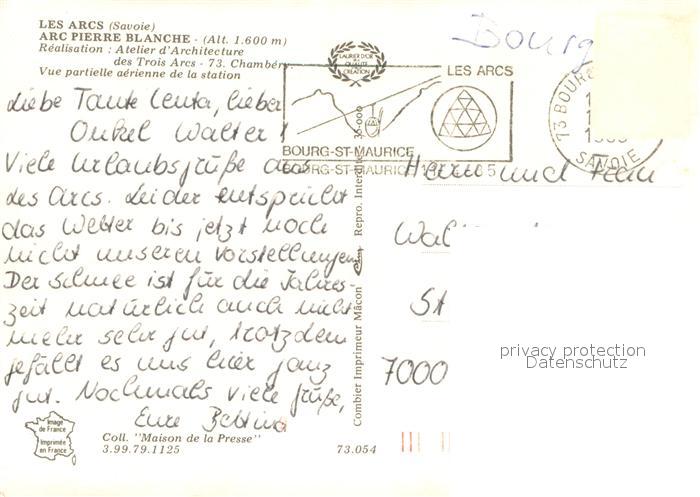 LES ARCS (Savoie)
ARC PIERRE BLANCHE - (Alt. 1.600 m)
Réalisation : Atelier d'Architecture
des Trois Arcs - 73. Chambéry
Vue partielle aérienne de la station
LAURIER D'OR
QUALITÉ
CRÉATION
Bourg
LES ARCS
BOURG-ST-MAURICE
BOURG-ST-MAURICE
73 BOURG
SAVOIE
Liebe Tante Centa, lieber
Onkel Walter!
Viele Urlaubsgrüße aus
des Arcs. Leider entspricht
das Wetter bis jetzt noch
nicht unseren Vorstellungen.
Der Schnee ist für die Jahres-
zeit natürlich auch nicht
mehr sehr gut, trotzdem
gefällt es uns hier ganz
gut. Nochmals viele Grüße,
Eure Bettina
Herrn und Frau
Wal
St
7000
Combier Imprimeur Mâcon
Repro. Interdite
privacy protection
Datenschutz
Image
de France
Imprimée
en France
Coll. "Maison de la Presse"
3.99.79.1125
73.054